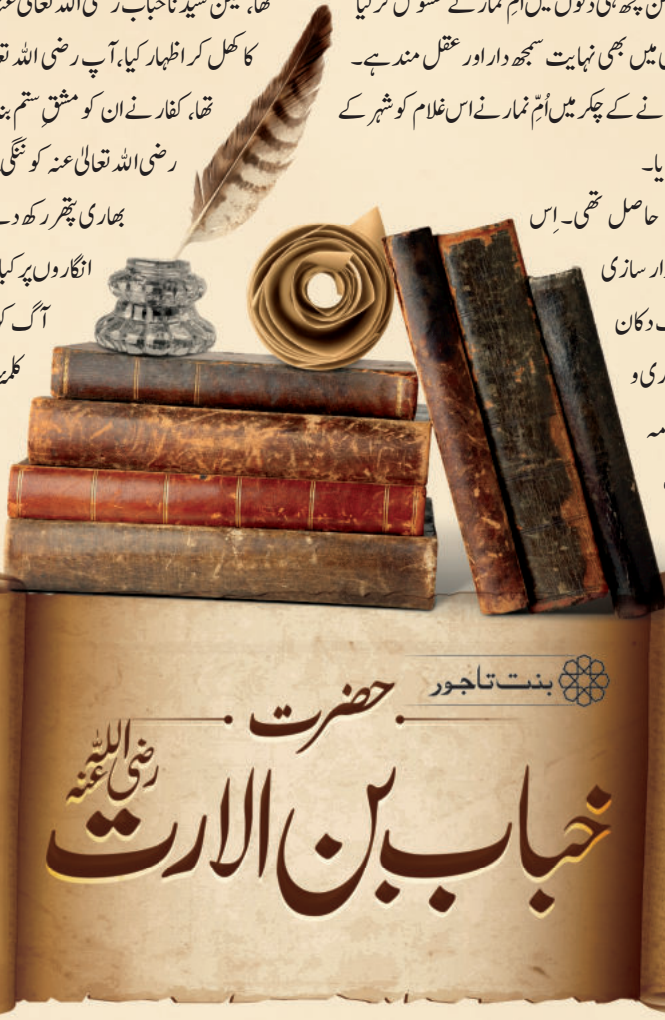 کچھ ہی دنوں میں اُمِ نمار نے محسوس کر لیا
میں بھی نہایت سمجھ دار اور عقل مند ہے۔
نے کے چکر میں اُمِّ نمار نے اس غلام کو شہر کے
یا۔
حاصل تھی۔ اِس
سازی
دکان
ری و
تھا، لیکن سیدنا خباب رضی اللہ تعالیٰ عنہ
کا کھل کر اظہار کیا، آپ رضی اللہ
تھا، کفار نے ان کو مشقِ ستم
رضی اللہ تعالیٰ عنہ کو ننگی
بھاری پتھر رکھ
انگاروں پر
آگ
بنت تاجور
حضرت
خباب بن الارت رضی اللہ عنہ